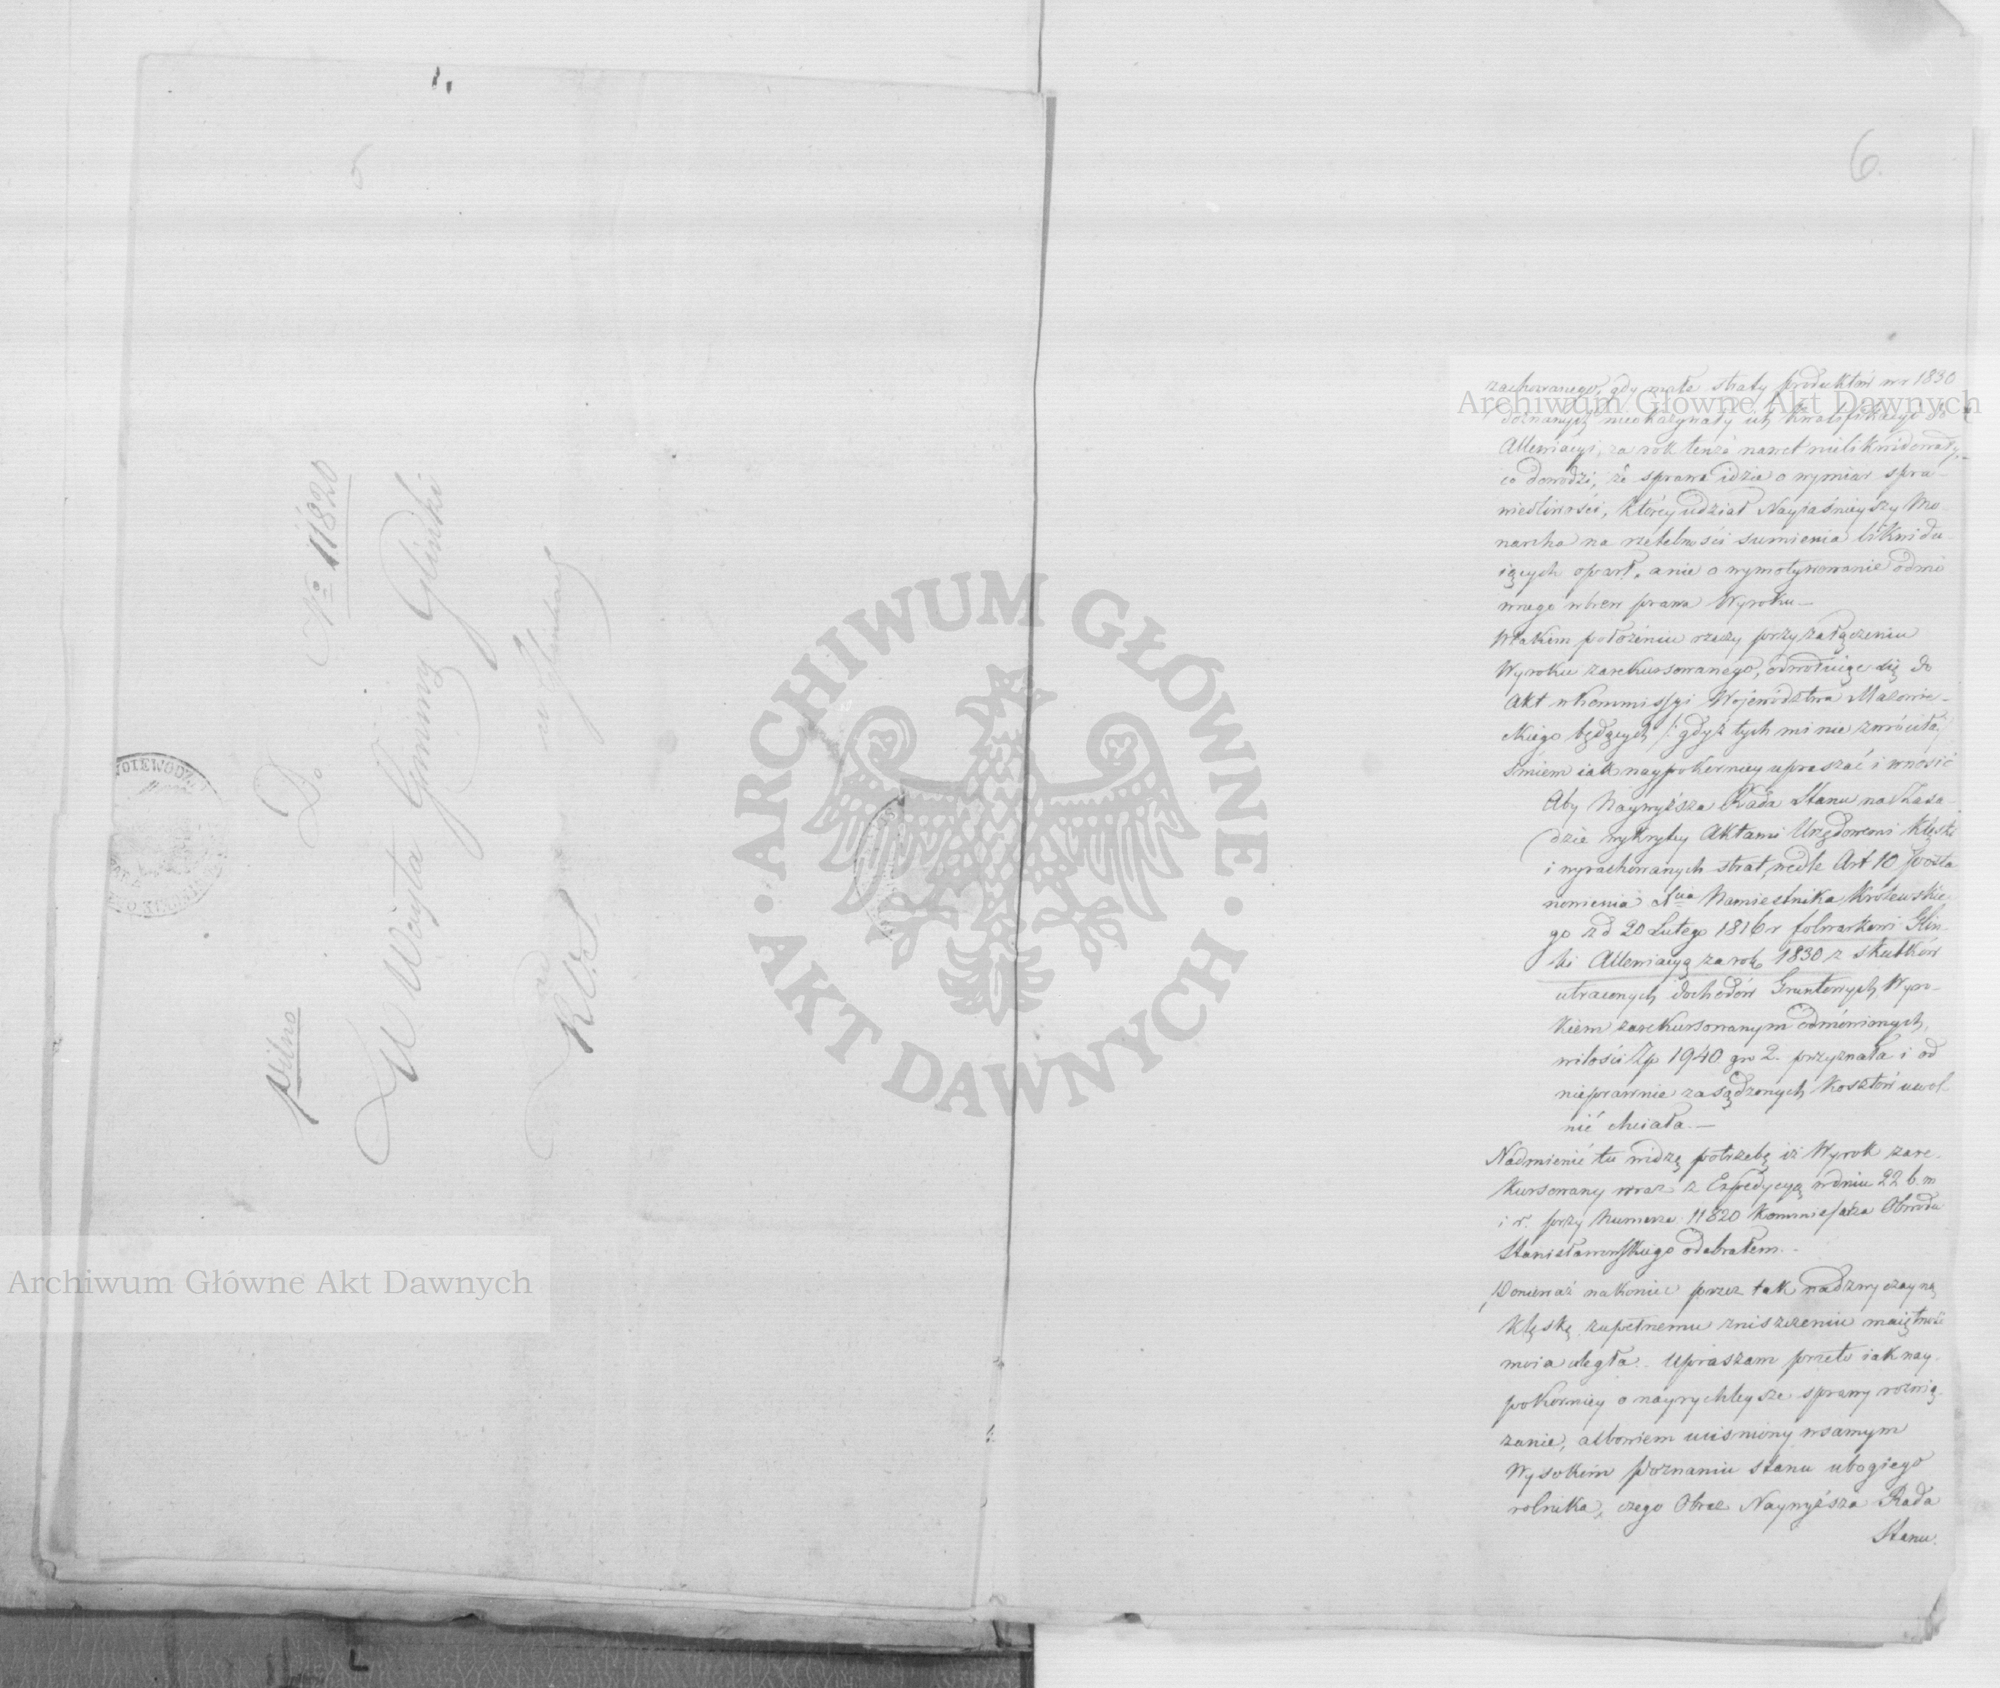 5
No 11820
Do
W Wóyta Gminy Glinki
w Glinkach
Pilno
ad
R.V.S.
6.
zachowanego, gdy małe straty produktów w r 1830
doznanych nieokazywały się kwalifikacyi do
Allewiacyi, za rok tenże nawet nielikwidowały,
co dowodzi, że sprawa idzie o wymiar spra-
wiedliwości, którey udział Nayjaśnieyszy Mo-
narcha na rzetelności sumienia likwidu-
iących oparł, a nie o wymotywowanie odmo
wnego wbrew prawa Wyroku —
W takim położeniu rzeczy przy załączeniu
Wyroku zarekursowanego, odwołuiąc się do
Akt w Kommissyi Województwa Mazowie-
ckiego będących /: gdyż tych mi nie zwróciła,
śmiem iak naypokorniey upraszać i wnosić
Aby Naywyższa Rada Stanu na Zasa-
dzie wykrytey Aktami Urzędowemi klęski
i wyrachowanych strat, wedle Art 10 Posta
nowienia Xcia Namiestnika Królewskie-
go z d 20 Lutego 1816 r folwarkowi Glin-
ki Allewiacyą za rok 1830 z skutków
utraconych dochodów Gruntowych, Wyro-
kiem zarekursowanym odmówionych,
w ilości Zp 1940 gr 2. przyznała i od
nieprawnie zasądzonych kosztów uwol-
nić chciała. —
Nadmienić tu widzę potrzebę iż Wyrok zare-
kursowany wraz z Expedycyą w dniu 22 b. m
i r. przy Numerze 11820 Kommissarza Obwodu
Stanisławowskiego odebrałem. -
Ponieważ nakoniec przez tak nadzwyczayną
klęskę zupełnemu zniszczeniu maiętność
moia uległa. Upraszam przeto iak nay-
pokorniey o nayrychleysze sprawy rozwią-
zanie, albowiem uciśniony w samym
Wysokim Poznaniu stanu ubogiego
rolnika, czego Obraz Naywyższa Rada
Stanu.
Archiwum Główne Akt Dawnych
Archiwum Główne Akt Dawnych
ARCHIWUM GŁÓWNE
AKT DAWNYCH